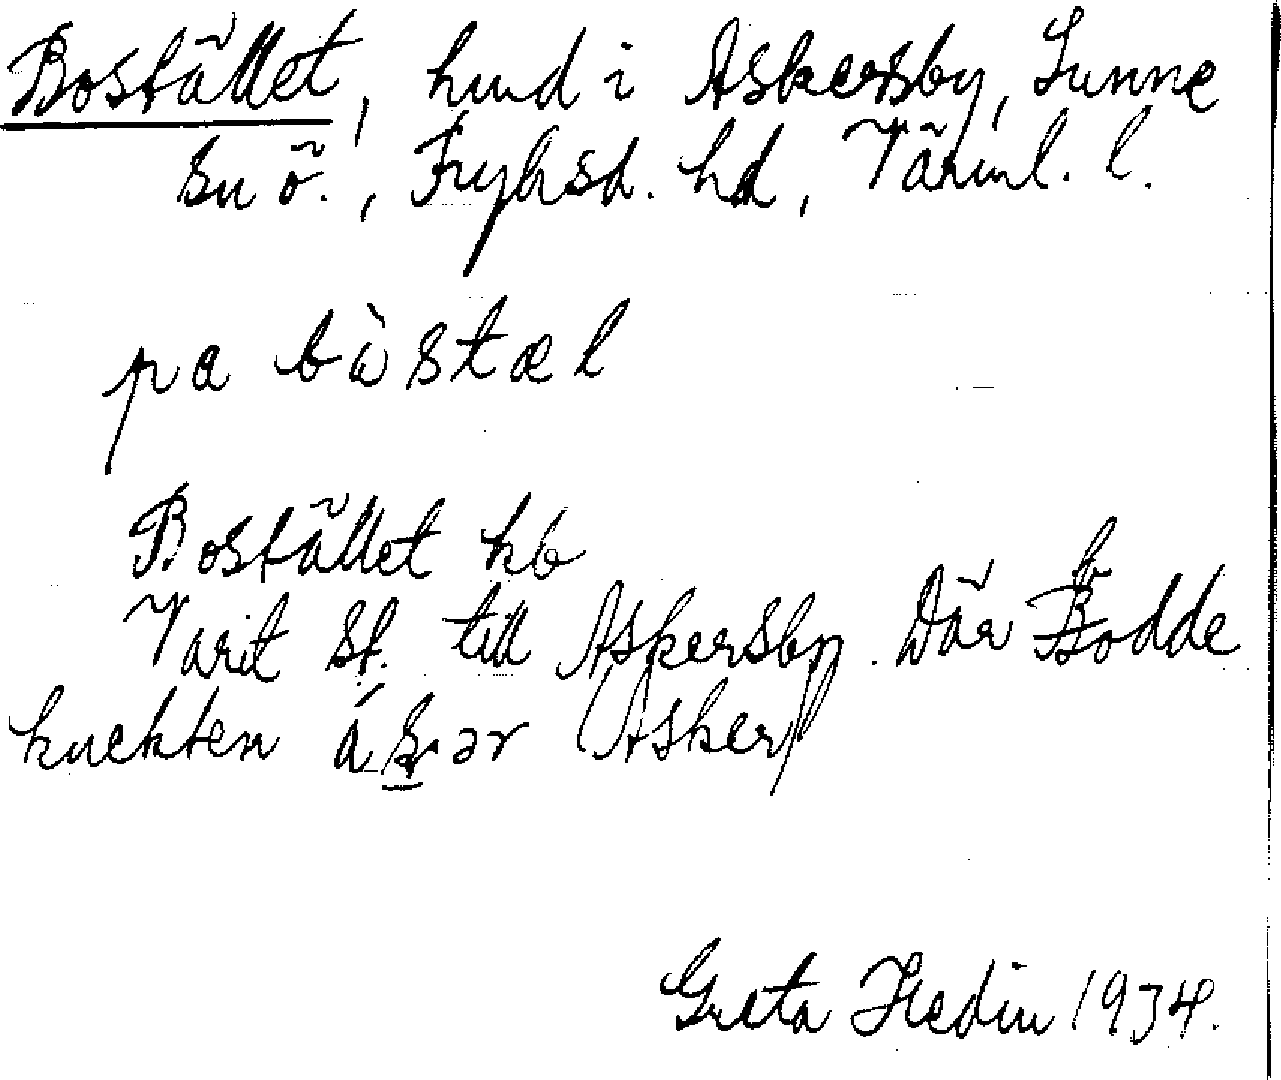 Bostället, hmd i Askersby, Sunne
sn ö., Fryksd. hd, Värml. l.
pa bòstæl
Bostället kb
Varit st. till Askersby. Där bodde
knekten áskər (Asker)
Greta Hedin 1934.